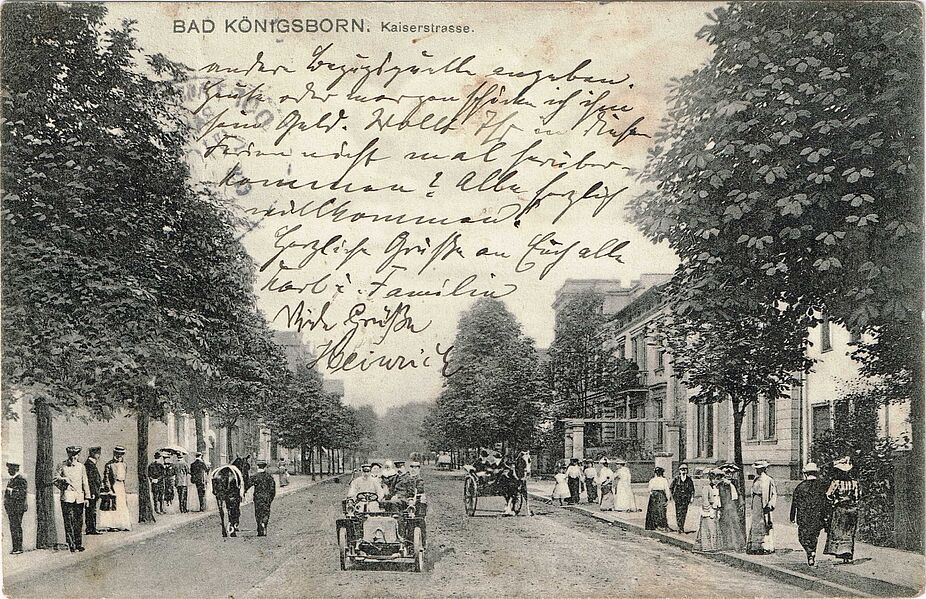 BAD KÖNIGSBORN. Kaiserstrasse.
andere Bezugsquelle angeben
Heute oder morgen schicke ich ihm
sein Geld. Wollt Ihr in diesen
Ferien nicht mal herüber-
kommen? Alle herzlich
willkommen.
Herzliche Grüße an Euch alle
Karl u. Familie
Viele Grüße
Heinrich